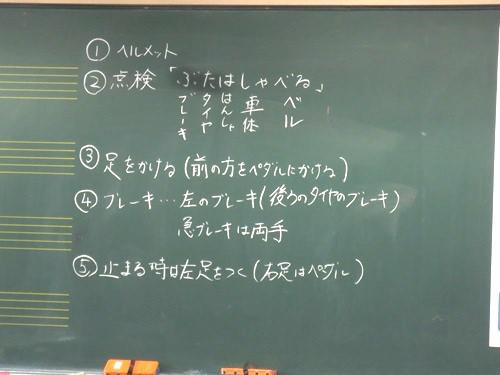 ① ヘルメット
② 点検「ぶたはしゃべる」
ブレーキ タイヤ はんしゃ 車体 ベル
③ 足をかける(前の方をペダルにかける)
④ ブレーキ…左のブレーキ(後ろのタイヤのブレーキ)
急ブレーキは両手
⑤ 止まる時は左足をつく(右足はペダル)